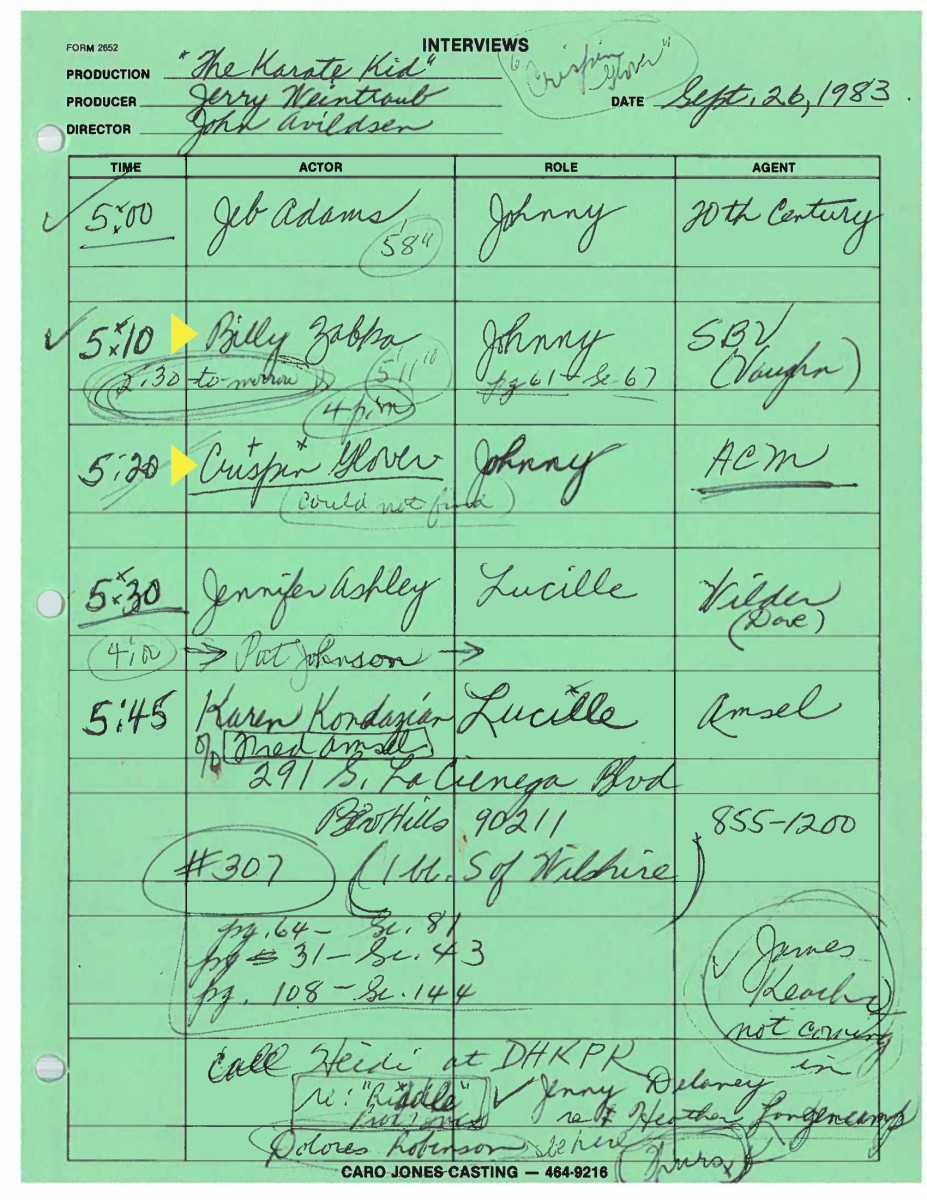 FORM 2652
INTERVIEWS
"Crispin Glover"
PRODUCTION "The Karate Kid"
PRODUCER Jerry Weintraub
DATE Sept. 26, 1983.
DIRECTOR John Avildsen
TIME ACTOR ROLE AGENT
5:00 Jeb Adams Johnny 20th Century
5'8"
5:10 Billy Zabka Johnny SBV
(Vaughn)
2:30 to-morrow 5'11" pg 61 - Sc. 67
4 p.m
5:20 Crispin Glover Johnny ACM
(could not find)
5:30 Jennifer Ashley Lucille Wilder
(Dave)
→ Pat Johnson →
5:45 Karen Kondazian Lucille Amsel
c/o Fred Amsel
291 S. La Cienega Blvd
Bev Hills 90211 855-1200
#307 (1 bl. S of Wilshire)
pg. 64 - Sc. 81
pg 31 - Sc. 43
pg. 108 - Sc. 144
✓ James
Keach
not coming
in
Call Heidi at DHKPR
re: "Riddle" ✓ Jenny Delaney
re Heather Langencamp
Dolores Robinson
Thurs
CARO JONES CASTING — 464-9216